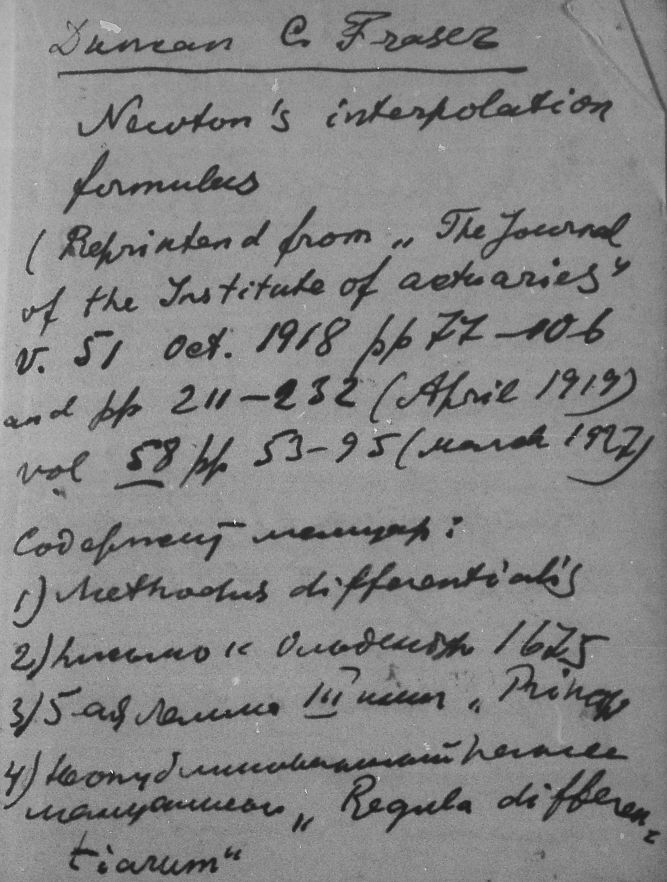 Duncan C. Fraser
Newton's interpolation
formulas
(Reprintend from „The Journal
of the Institute of actuaries"
v. 51 Oct. 1918 pp 77–106
and pp 211–232 (April 1919)
vol 58 pp 53–95 (March 1927)
Содержит :
1) Methodus differentialis
2) письмо к Ольденбургу 1675
3) 5-ая лемма III книги „Princip
4)
„Regula differen-
tiarum"